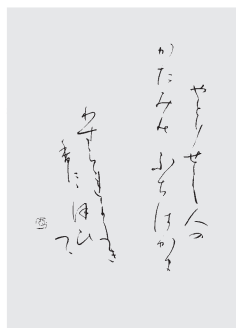 やとりせし人の
かたみか ふちはかま
わすられかたき
香ににほひつゝ